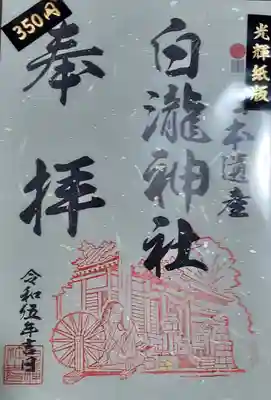 350円
光輝紙版
日本遺産
白瀧神社
奉拝
令和伍年吉日